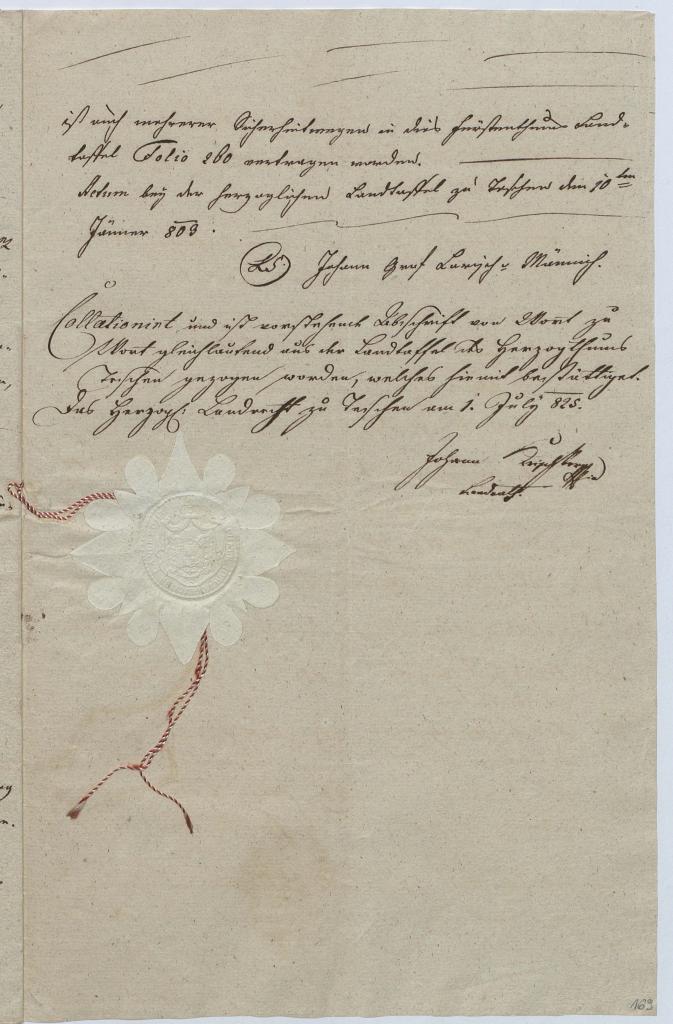 ist auch mehrerer Sicherheitwegen in dies Fürstenthums Land-
taffel Folio 260 vertragen worden.
Actum bey der herzoglichen Landtaffel zu Teschen den 10ten
Jänner 803.
LS. Johann Graf Larisch v Männich.
Collationirt, und ist vorstehende Abschrift von Wort zu
Wort gleichlautend aus der Landtaffel des Herzogthums
Teschen gezogen worden, welches hiemit bestättiget.
Das Herzogl: Landrecht zu Teschen am 1. July 825.
Johann
Landrath.
169